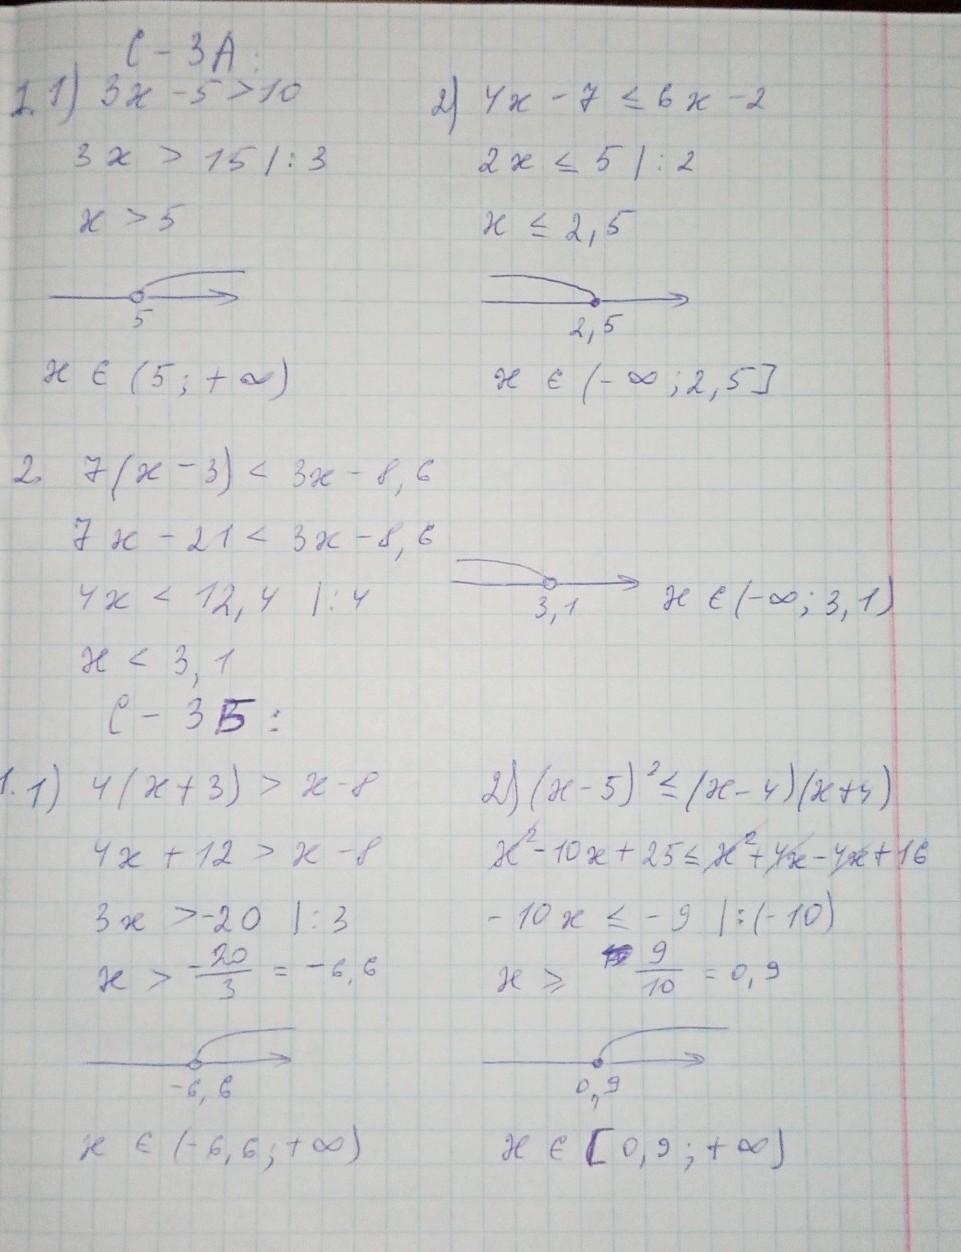 С - 3А :
1. 1) 3x - 5 > 10
3x > 15 | : 3
x > 5
5
x ∈ (5 ; + ∞)
2) 4x - 7 ≤ 6x - 2
2x ≤ 5 | : 2
x ≤ 2,5
2,5
x ∈ (- ∞ ; 2,5]
2. 7(x - 3) < 3x - 8,6
7x - 21 < 3x - 8,6
4x < 12,4 | : 4
x < 3,1
3,1
x ∈ (-∞ ; 3,1)
С - 3Б :
1. 1) 4(x + 3) > x - 8
4x + 12 > x - 8
3x > -20 | : 3
x > -20/3 = -6,6
-6,6
x ∈ (-6,6 ; +∞)
2) (x - 5)² ≤ (x - 4)(x + 4)
x² - 10x + 25 ≤ x² + 4x - 4x + 16
- 10x ≤ - 9 | : (-10)
x ⩾ 9/10 = 0,9
0,9
x ∈ [0,9 ; + ∞)